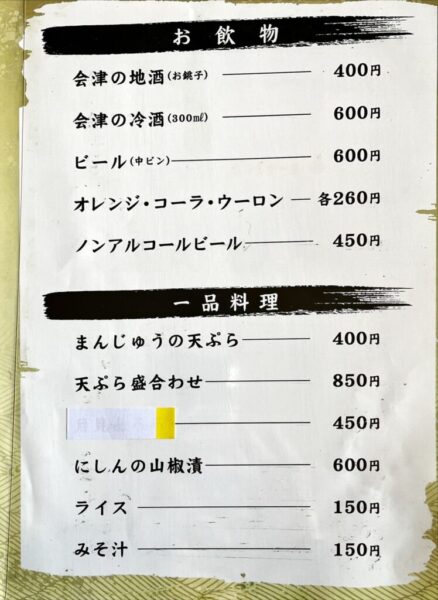 お飲物
会津の地酒(お銚子) 400円
会津の冷酒(300㎖) 600円
ビール(中ビン) 600円
オレンジ・コーラ・ウーロン 各260円
ノンアルコールビール 450円
一品料理
まんじゅうの天ぷら 400円
天ぷら盛合わせ 850円
450円
にしんの山椒漬 600円
ライス 150円
みそ汁 150円